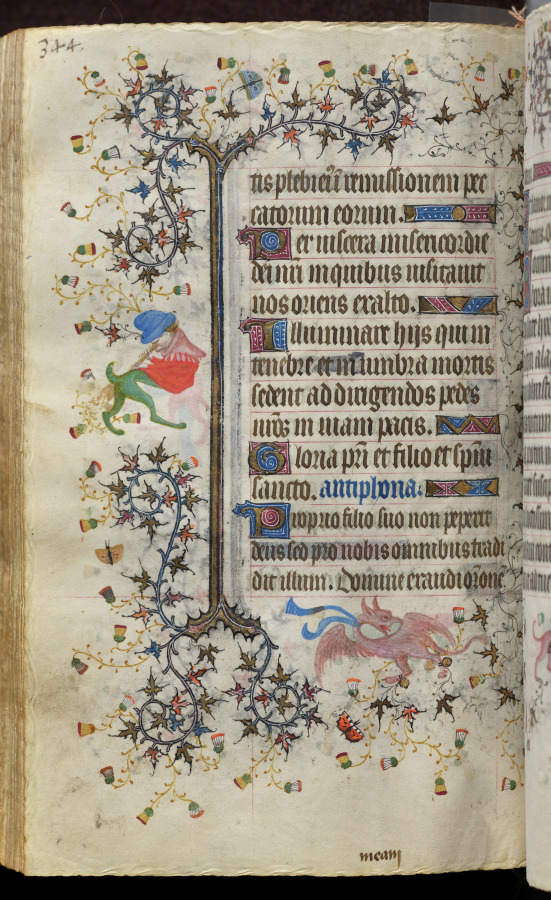 344.
tis plebi eiꝰ ī remissionem pec
catorum eorum.
Per uiscera misericordie
dei nr̄i in quibus uisitauit
nos oriens exalto.
Illuminare hijs qui in
tenebre et in umbra mortis
sedent ad dirigendos pedes
nr̄os in uiam pacis.
Gloria pr̄i et filio et sp̄ui
sancto. antiphona:
Proprio filio suo non peperit
deus sed pro nobis omnibus tradi
dit illum. Domine exaudi or̄one
meam